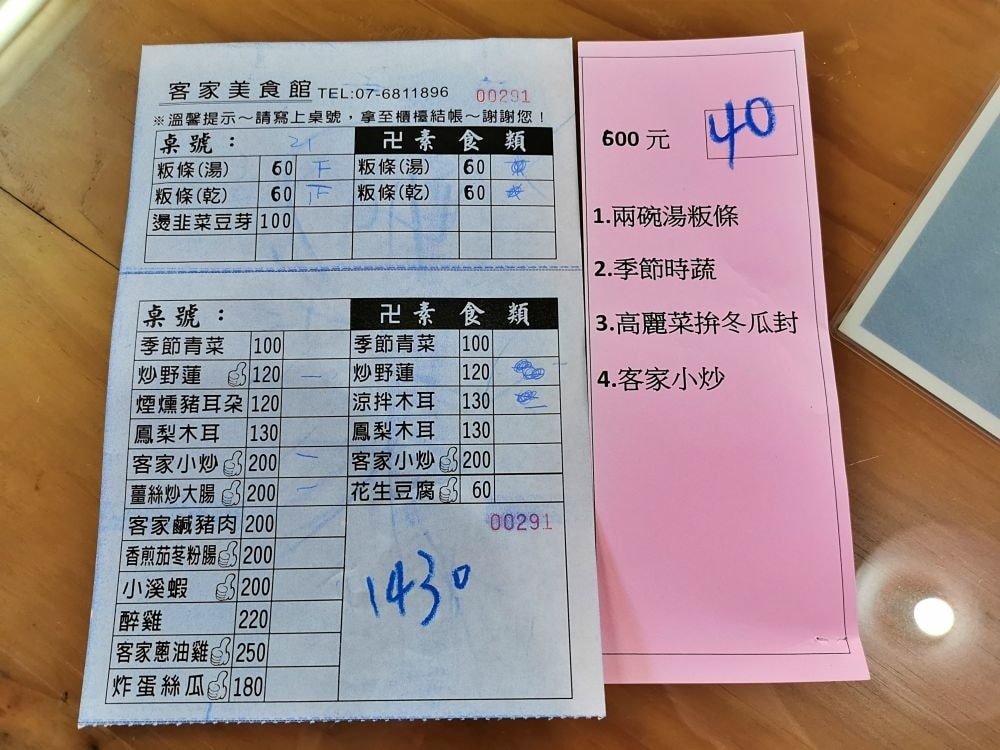 客家美食館 TEL:07-6811896 00291
※溫馨提示～請寫上桌號，拿至櫃檯結帳～謝謝您！
桌號： 21 卍素食類
粄條(湯) 60 下 粄條(湯) 60
粄條(乾) 60 正 粄條(乾) 60
燙韭菜豆芽 100
桌號： 卍素食類
季節青菜 100 季節青菜 100
炒野蓮 120 一 炒野蓮 120
煙燻豬耳朵 120 涼拌木耳 130 一
鳳梨木耳 130 鳳梨木耳 130
客家小炒 200 一 客家小炒 200
薑絲炒大腸 200 一 花生豆腐 60
客家鹹豬肉 200 00291
香煎茄苳粉腸 200
小溪蝦 200
醉雞 220
客家蔥油雞 250
炸蛋絲瓜 180
1430
600 元 40
1.兩碗湯粄條
2.季節時蔬
3.高麗菜拚冬瓜封
4.客家小炒